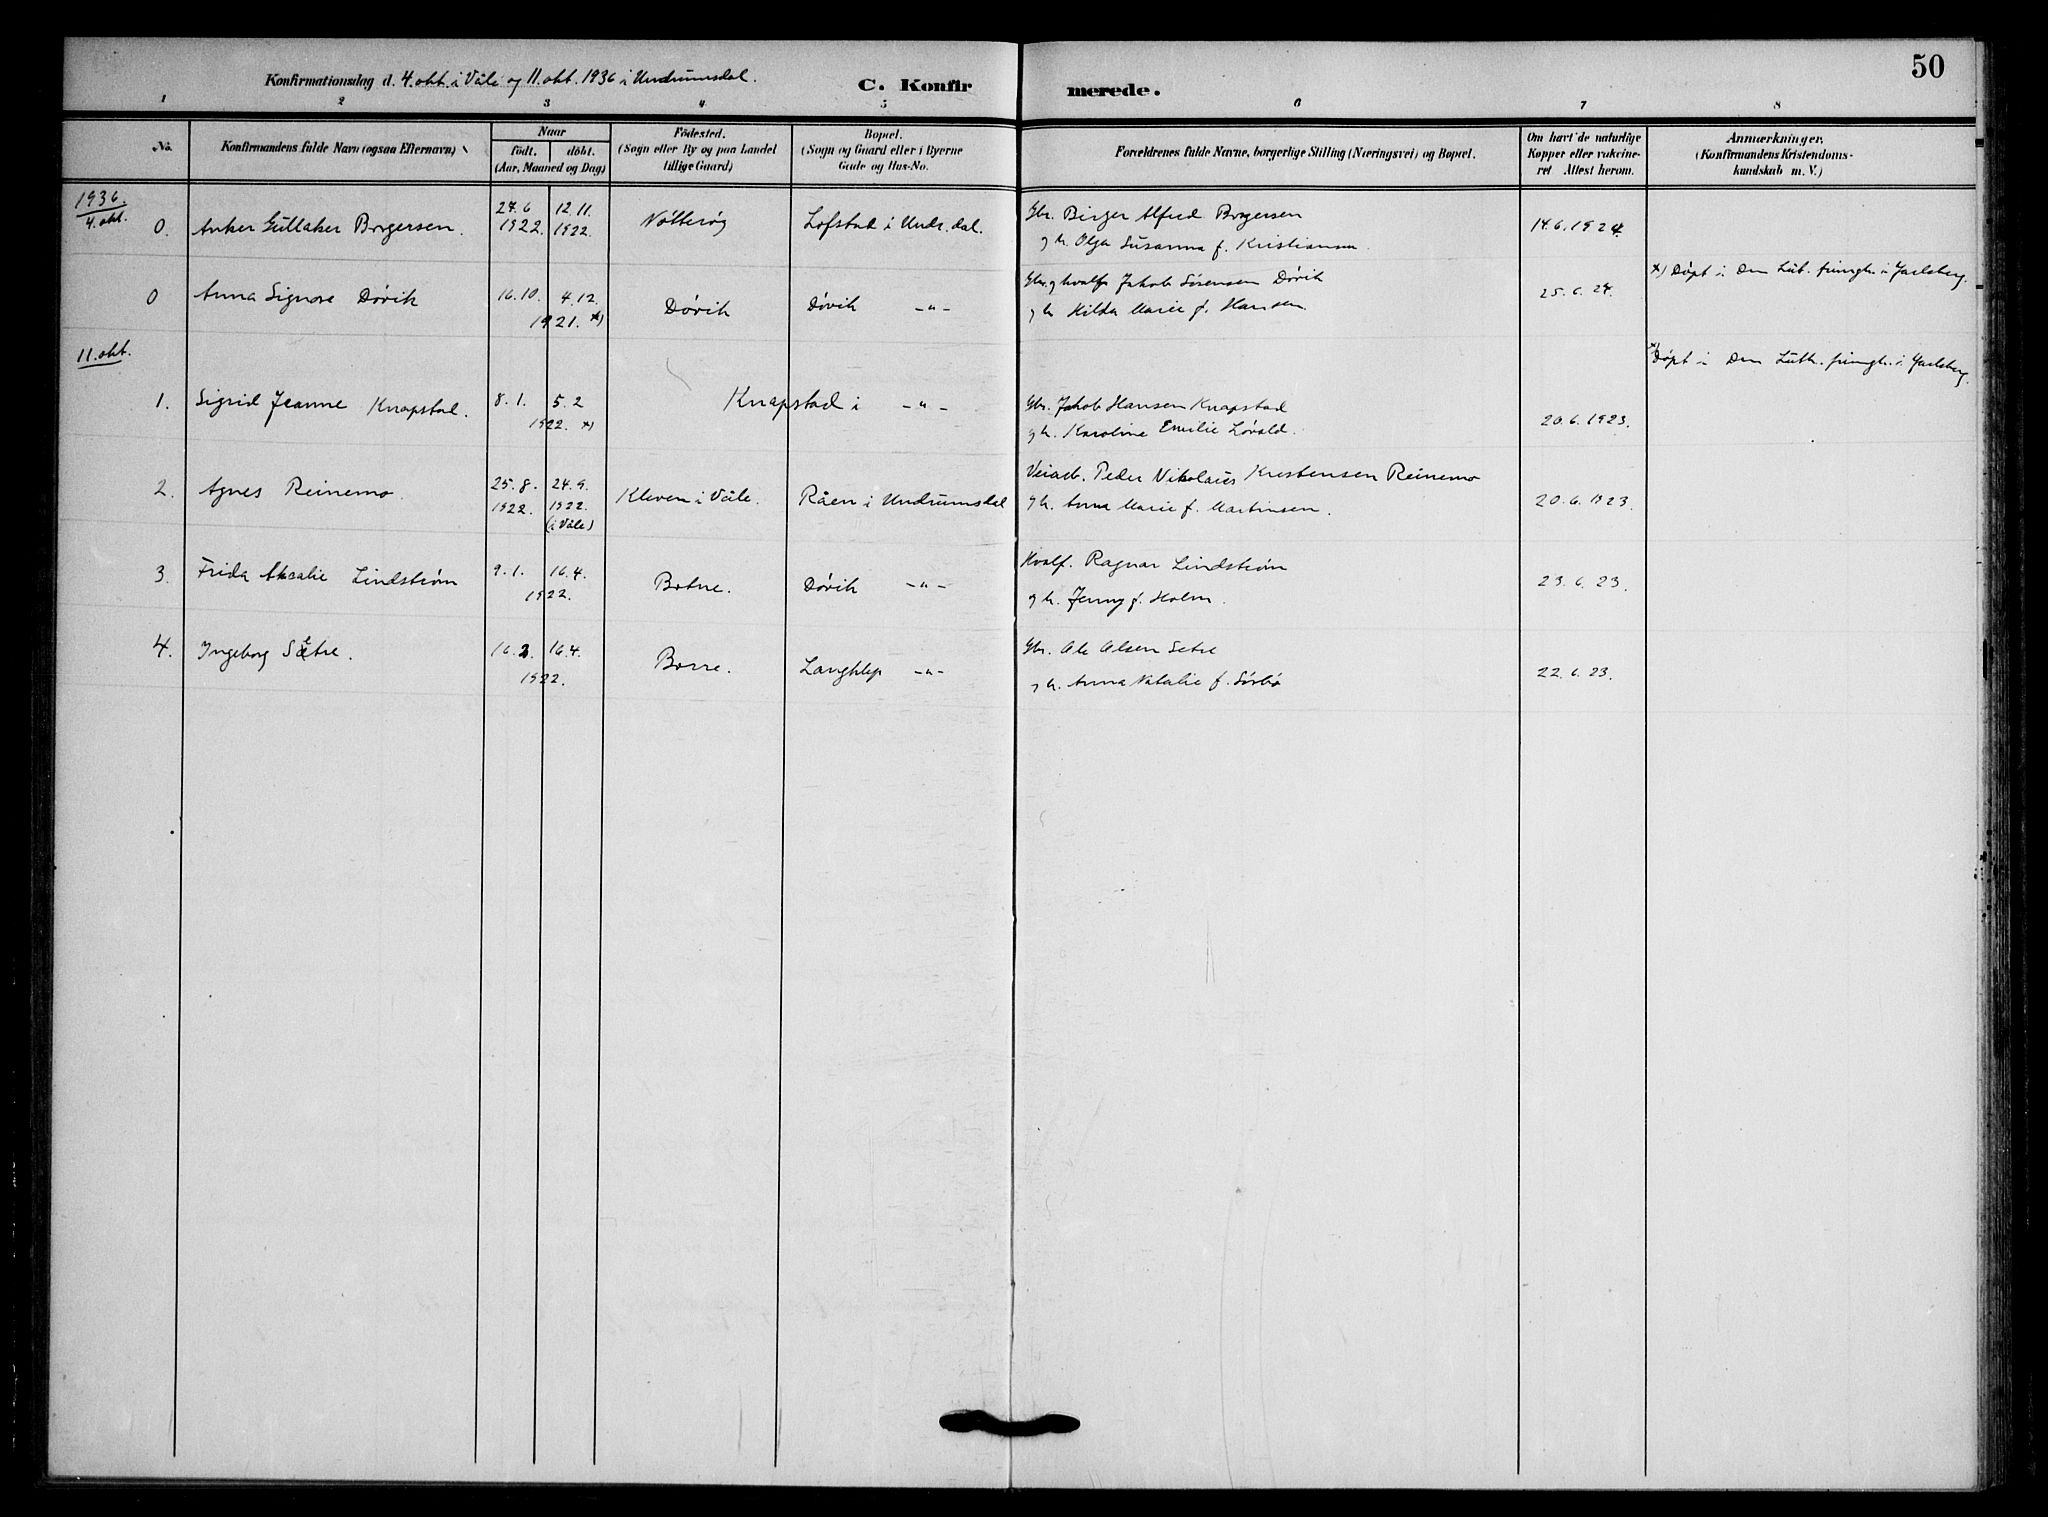 50
Konfirmationsdag d. 4. okt. i Våle og 11. okt. 1936 i Undrumsdal.
C. Konfirmerede.
1 2 3 4 5 6 7 8
No.
Konfirmandens fulde Navn (ogsaa Efternavn)
Naar
födt. döbt.
(Aar, Maaned og Dag)
Födested.
(Sogn eller By og paa Landet
tillige Gaard)
Bopæl.
(Sogn og Gaard eller i Byerne
Gade og Hus-No.
Forældrenes fulde Navne, borgerlige Stilling (Næringsvei) og Bopæl.
Om havt de naturlige
Kopper eller vakcine-
ret Attest herom.
Anmærkninger,
(Konfirmandens Kristendoms-
kundskab m. V.)
1936.
4. okt.
0. Anker Gullaker Borgersen. 27.6 1922. 12.11. 1922. Nøtterøy Lofstad i Undr.dal. Gbr. Birger Alfred Borgersen
og h. Olga Susanna f. Kristiansen. 14.6.1924.
0 Anna Signore Døvik 16.10. 4.12. 1921. *) Døvik Døvik -"- Gbr. og hvalf. Jakob Sørensen Døvik
og h. Hilda Marie f. Hansen. 25.6.24.
*) Døpt i Den Luth. frimgh. i Jarlsberg.
11. okt.
1. Sigrid Jeanne Knapstad. 8.1. 5.2 1922. *) Knapstad i -"- Gbr. Jakob Hansen Knapstad
og h. Karoline Emilie Løvald. 20.6.1923.
*) Døpt i Den Luth. frimgh. i Jarlsberg.
2. Agnes Reinemo. 25.8. 1922. 24.9. 1922. (i Våle) Kleven i Våle. Råen i Undrumsdal Veiarb. Peder Nikolaius Kristensen Reinemo
og h. Anna Marie f. Martinsen. 20.6.1923.
3. Frida Lindstrøm 9.1. 16.4. 1922. Botne. Døvik -"- Hvalf. Ragnar Lindstrøm
og h. Jenny f. Holm. 23.6.23.
4. Ingeborg Setre. 16.2 16.4. 1922. Borre. Langklep -"- Gbr. Ole Olsen Setre
og h. Anna Natalie f. Sørbø 22.6.23.